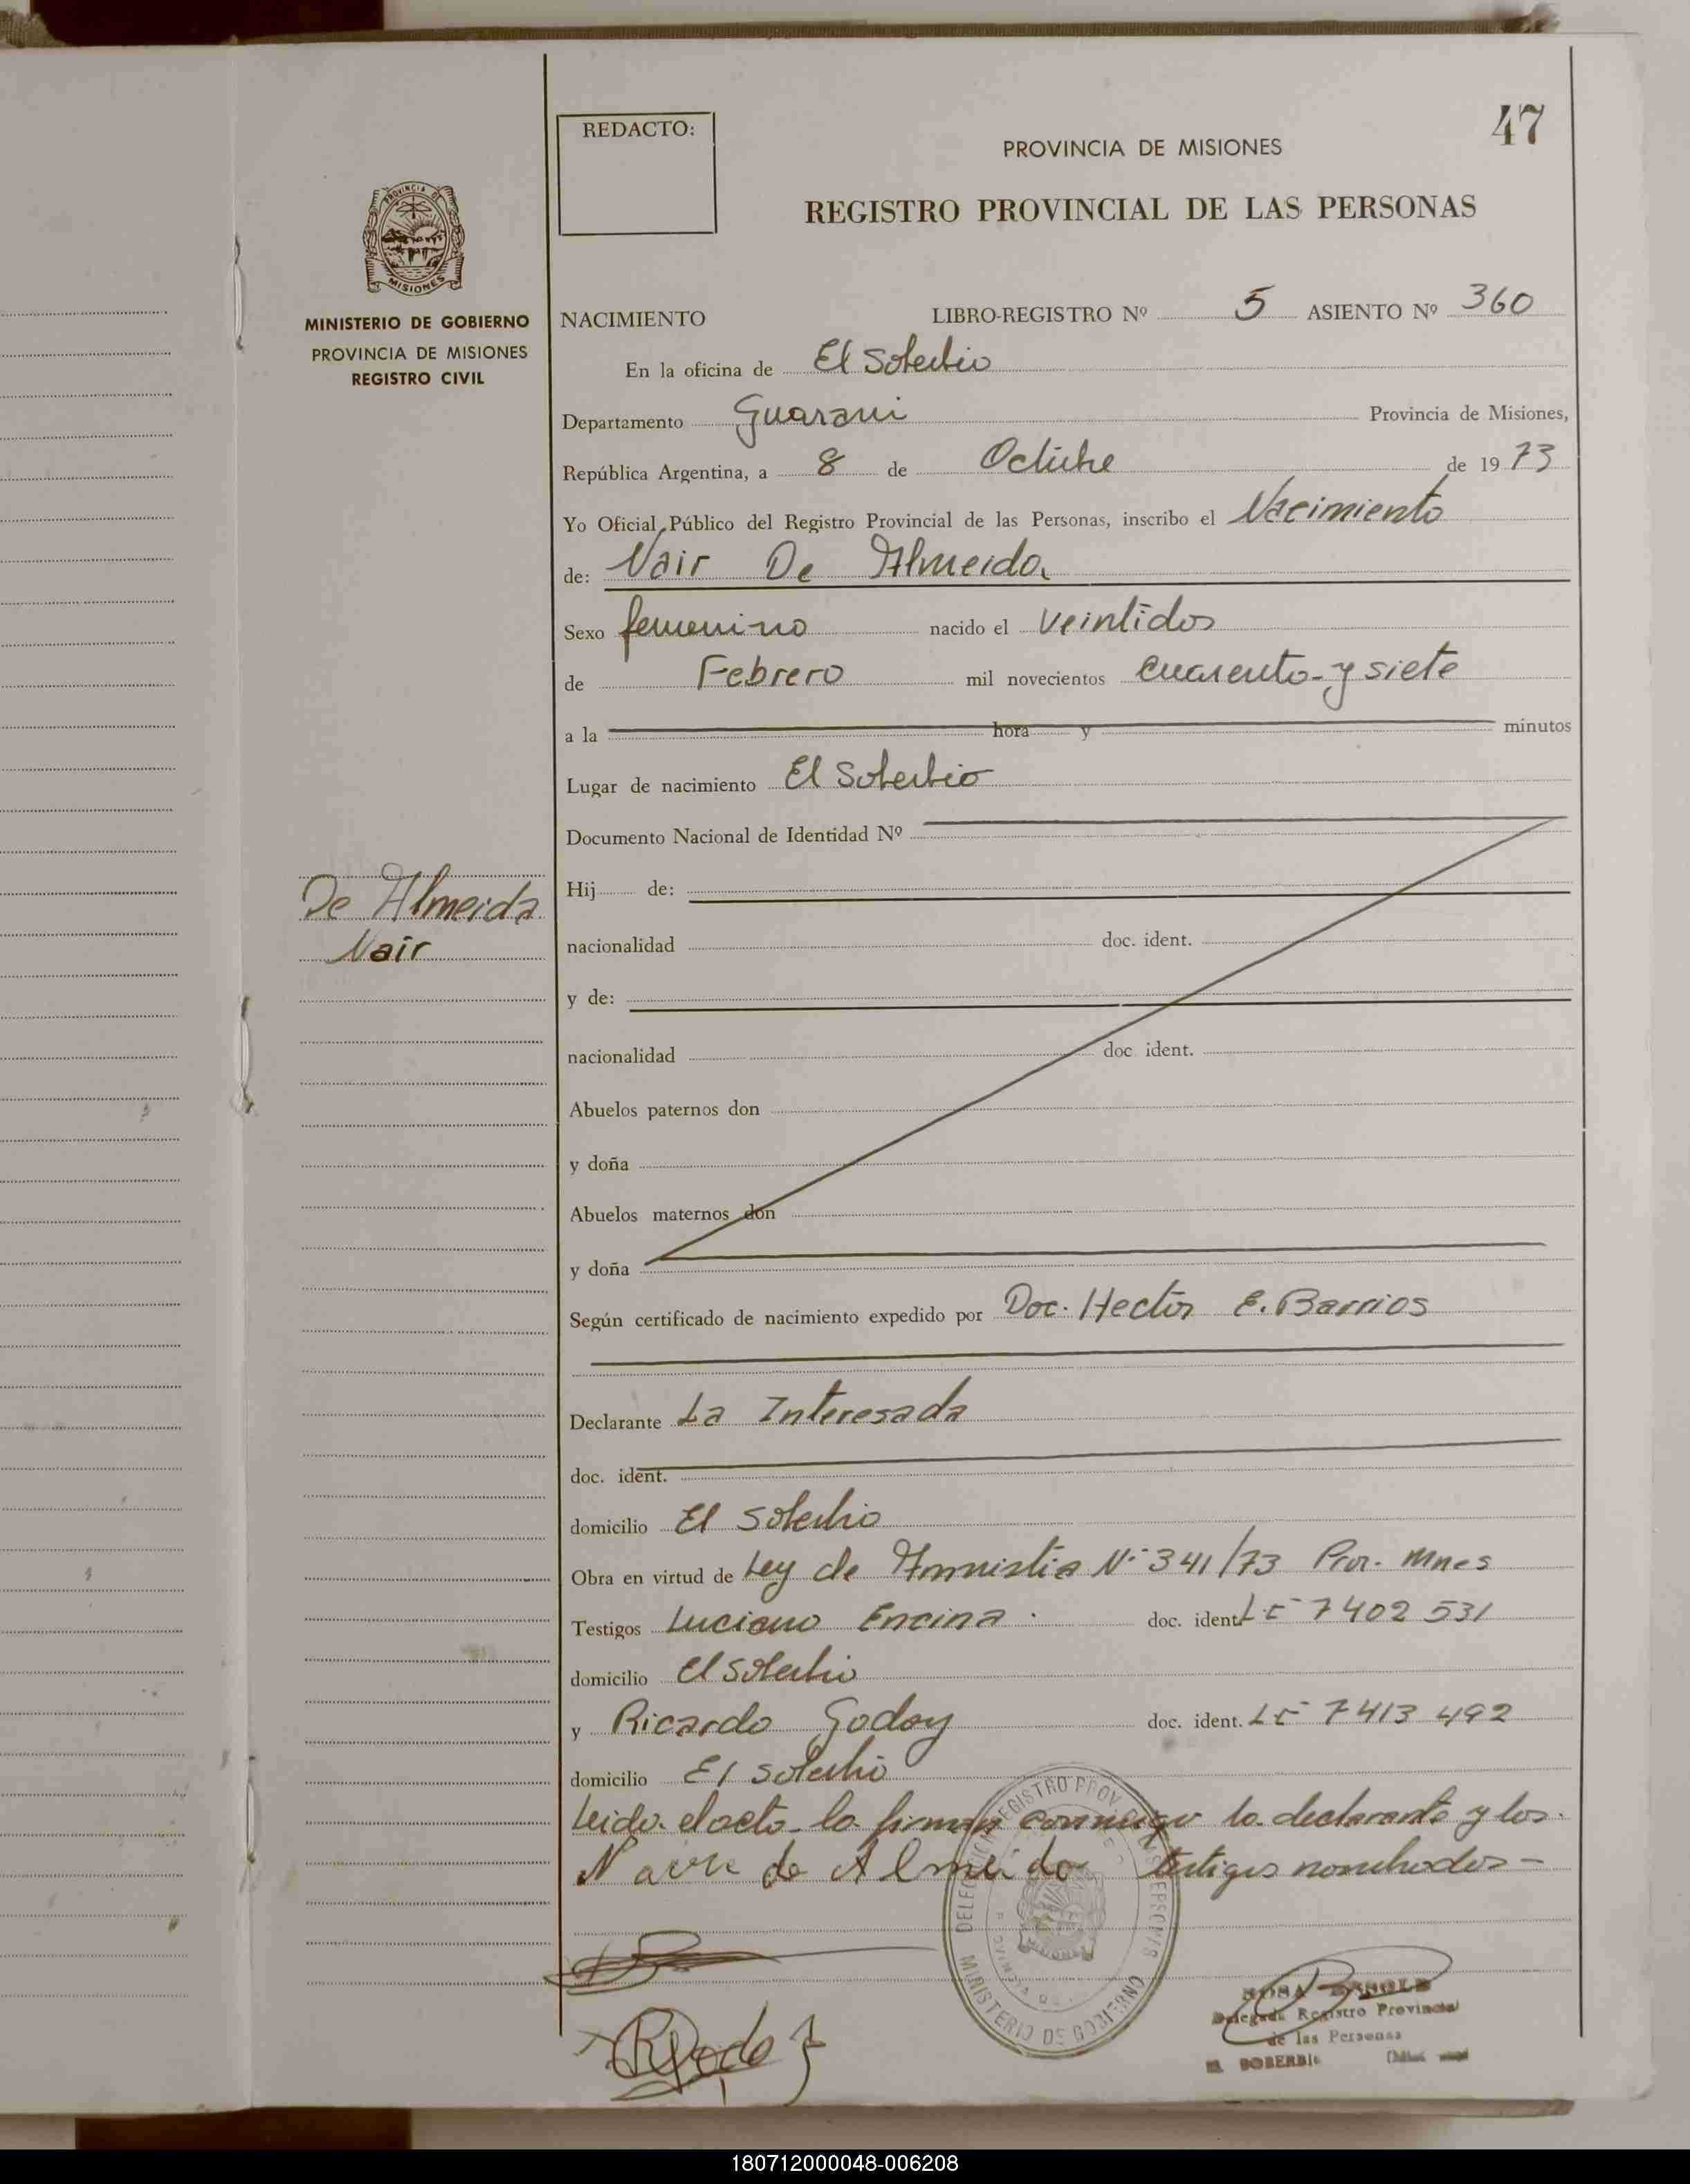 47
REDACTO:
PROVINCIA DE MISIONES
REGISTRO PROVINCIAL DE LAS PERSONAS
PROVINCIA DE
MISIONES
MINISTERIO DE GOBIERNO
PROVINCIA DE MISIONES
REGISTRO CIVIL
NACIMIENTO LIBRO-REGISTRO Nº 5 ASIENTO Nº 360
En la oficina de El Soberbio
Departamento Guarani Provincia de Misiones,
República Argentina, a 8 de Octubre de 1973
Yo Oficial Público del Registro Provincial de las Personas, inscribo el Nacimiento
de: Nair De Almeida
Sexo femenino nacido el veintidos
de Febrero mil novecientos cuarenta y siete
a la hora y minutos
Lugar de nacimiento El Soberbio
Documento Nacional de Identidad Nº
De Almeida
Nair
Hij de:
nacionalidad doc. ident.
y de:
nacionalidad doc ident.
Abuelos paternos don
y doña
Abuelos maternos don
y doña
Según certificado de nacimiento expedido por Doc. Hector E. Barrios
Declarante La Interesada
doc. ident.
domicilio El Soberbio
Obra en virtud de Ley de Amnistia Nº 341/73 Prov. Mnes
Testigos Luciano Encina doc. ident. LE 7402 531
domicilio El Soberbio
y Ricardo Godoy doc. ident. LE 7413 492
domicilio El Soberbio
Leido el acto lo firman conmigo la declarante y los
de Almeida testigos nombrados -
DELEGACION REGISTRO PROV. PERSONAS
MINISTERIO DE GOBIERNO
ROSA
Delegada Registro Provincial
de las Personas
EL SOBERBIO
180712000048-006208